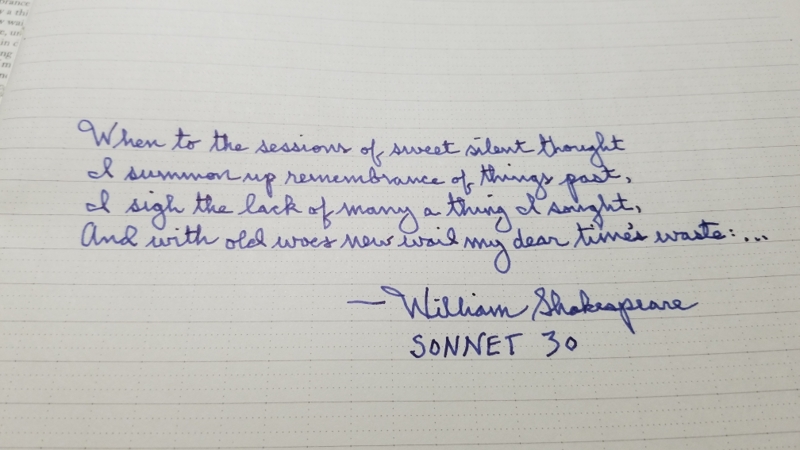 When to the sessions of sweet silent thought
I summon up remembrance of things past,
I sigh the lack of many a thing I sought,
And with old woes new wail my dear time's waste:...
—William Shakespeare
SONNET 30